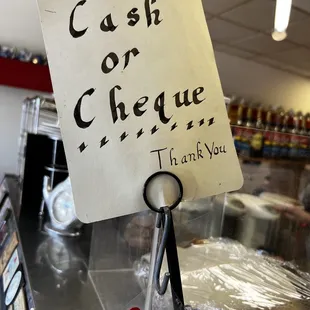 Cash
or
Cheque
Thank You